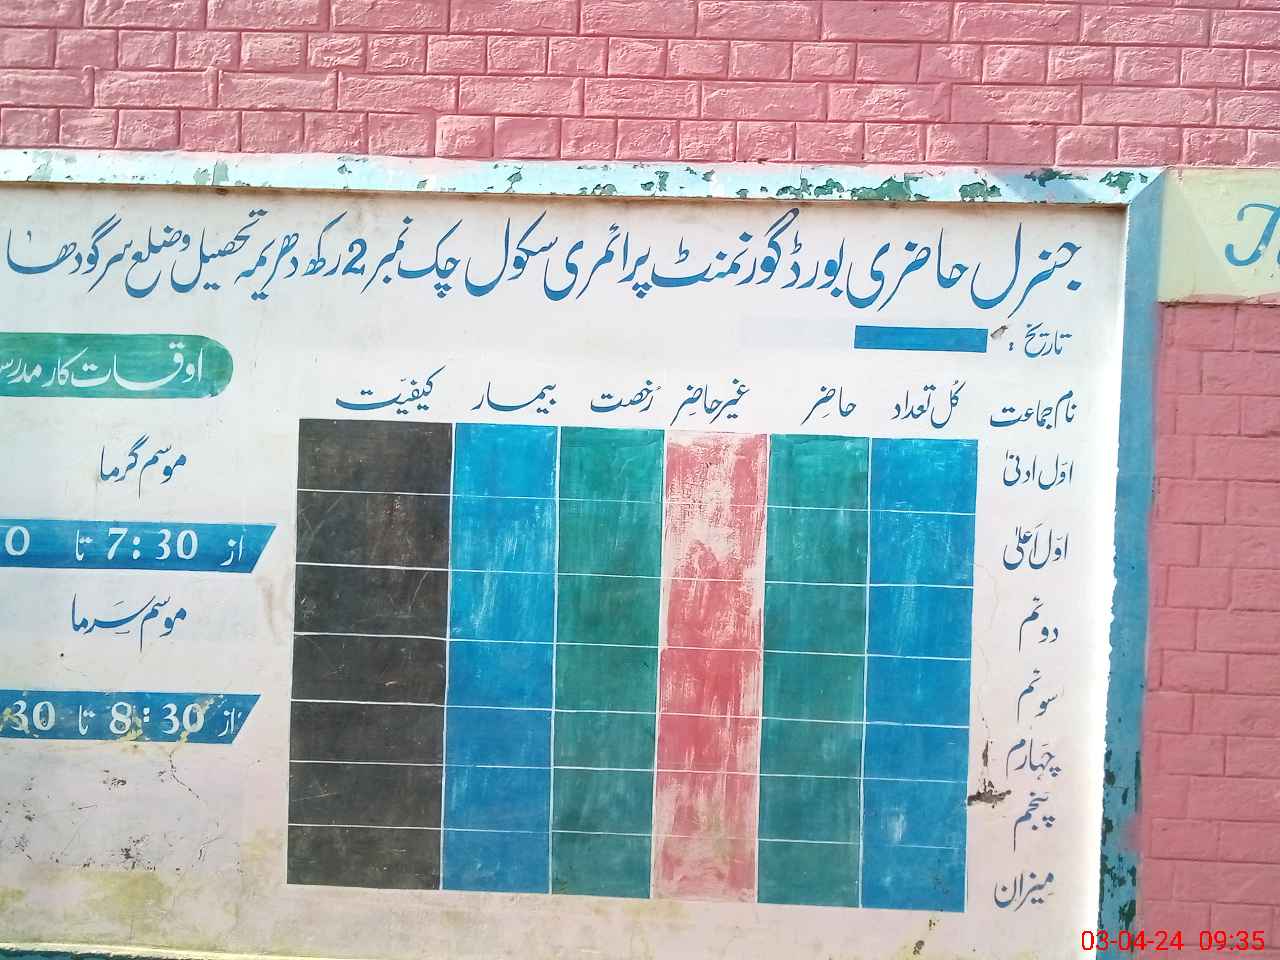 جنرل حاضری بورڈ گورنمنٹ پرائمری سکول چک نمبر 2 رکھ دھریمہ تحصیل و ضلع سرگودھا
تاریخ :
نام جماعت کُل تعداد حاضِر غیر حاضِر رُخصت بیمار کیفیّت
اوّل ادنیٰ
اوّل اَعلیٰ
دوئم
سوئم
چہارم
پنجم
مِیزان
اوقات کار مدرسہ
موسم گرما
از 7:30 تا
موسم سَرِما
از 8:30 تا 30
03-04-24 09:35